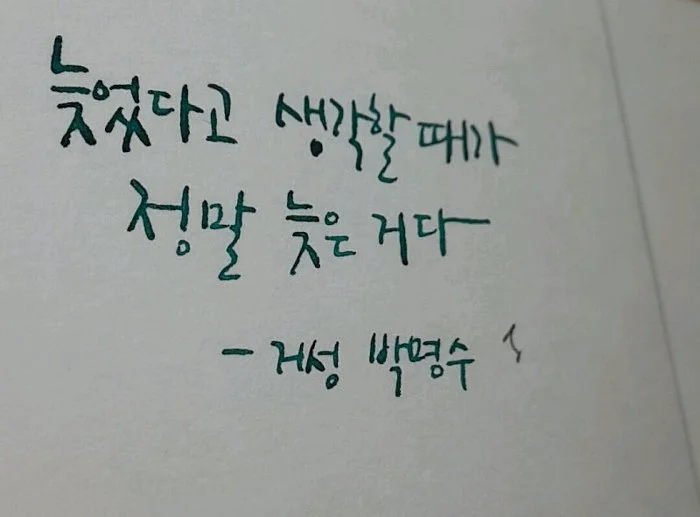 늦었다고 생각할 때가
정말 늦은 거다
- 거성 박명수